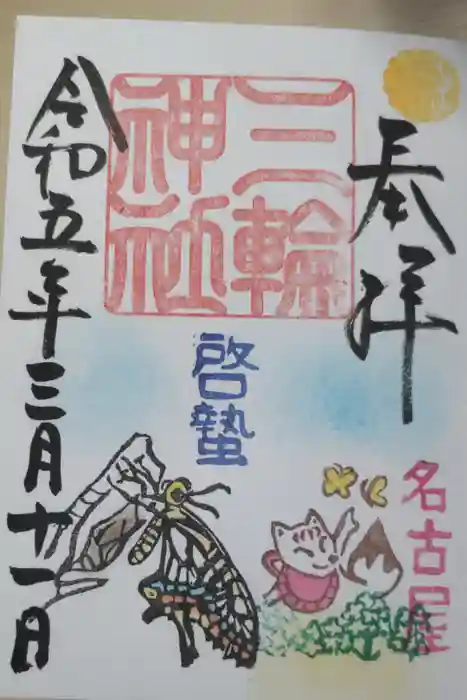 奉拝
名古屋
三輪
神社
啓蟄
令和五年三月十一日